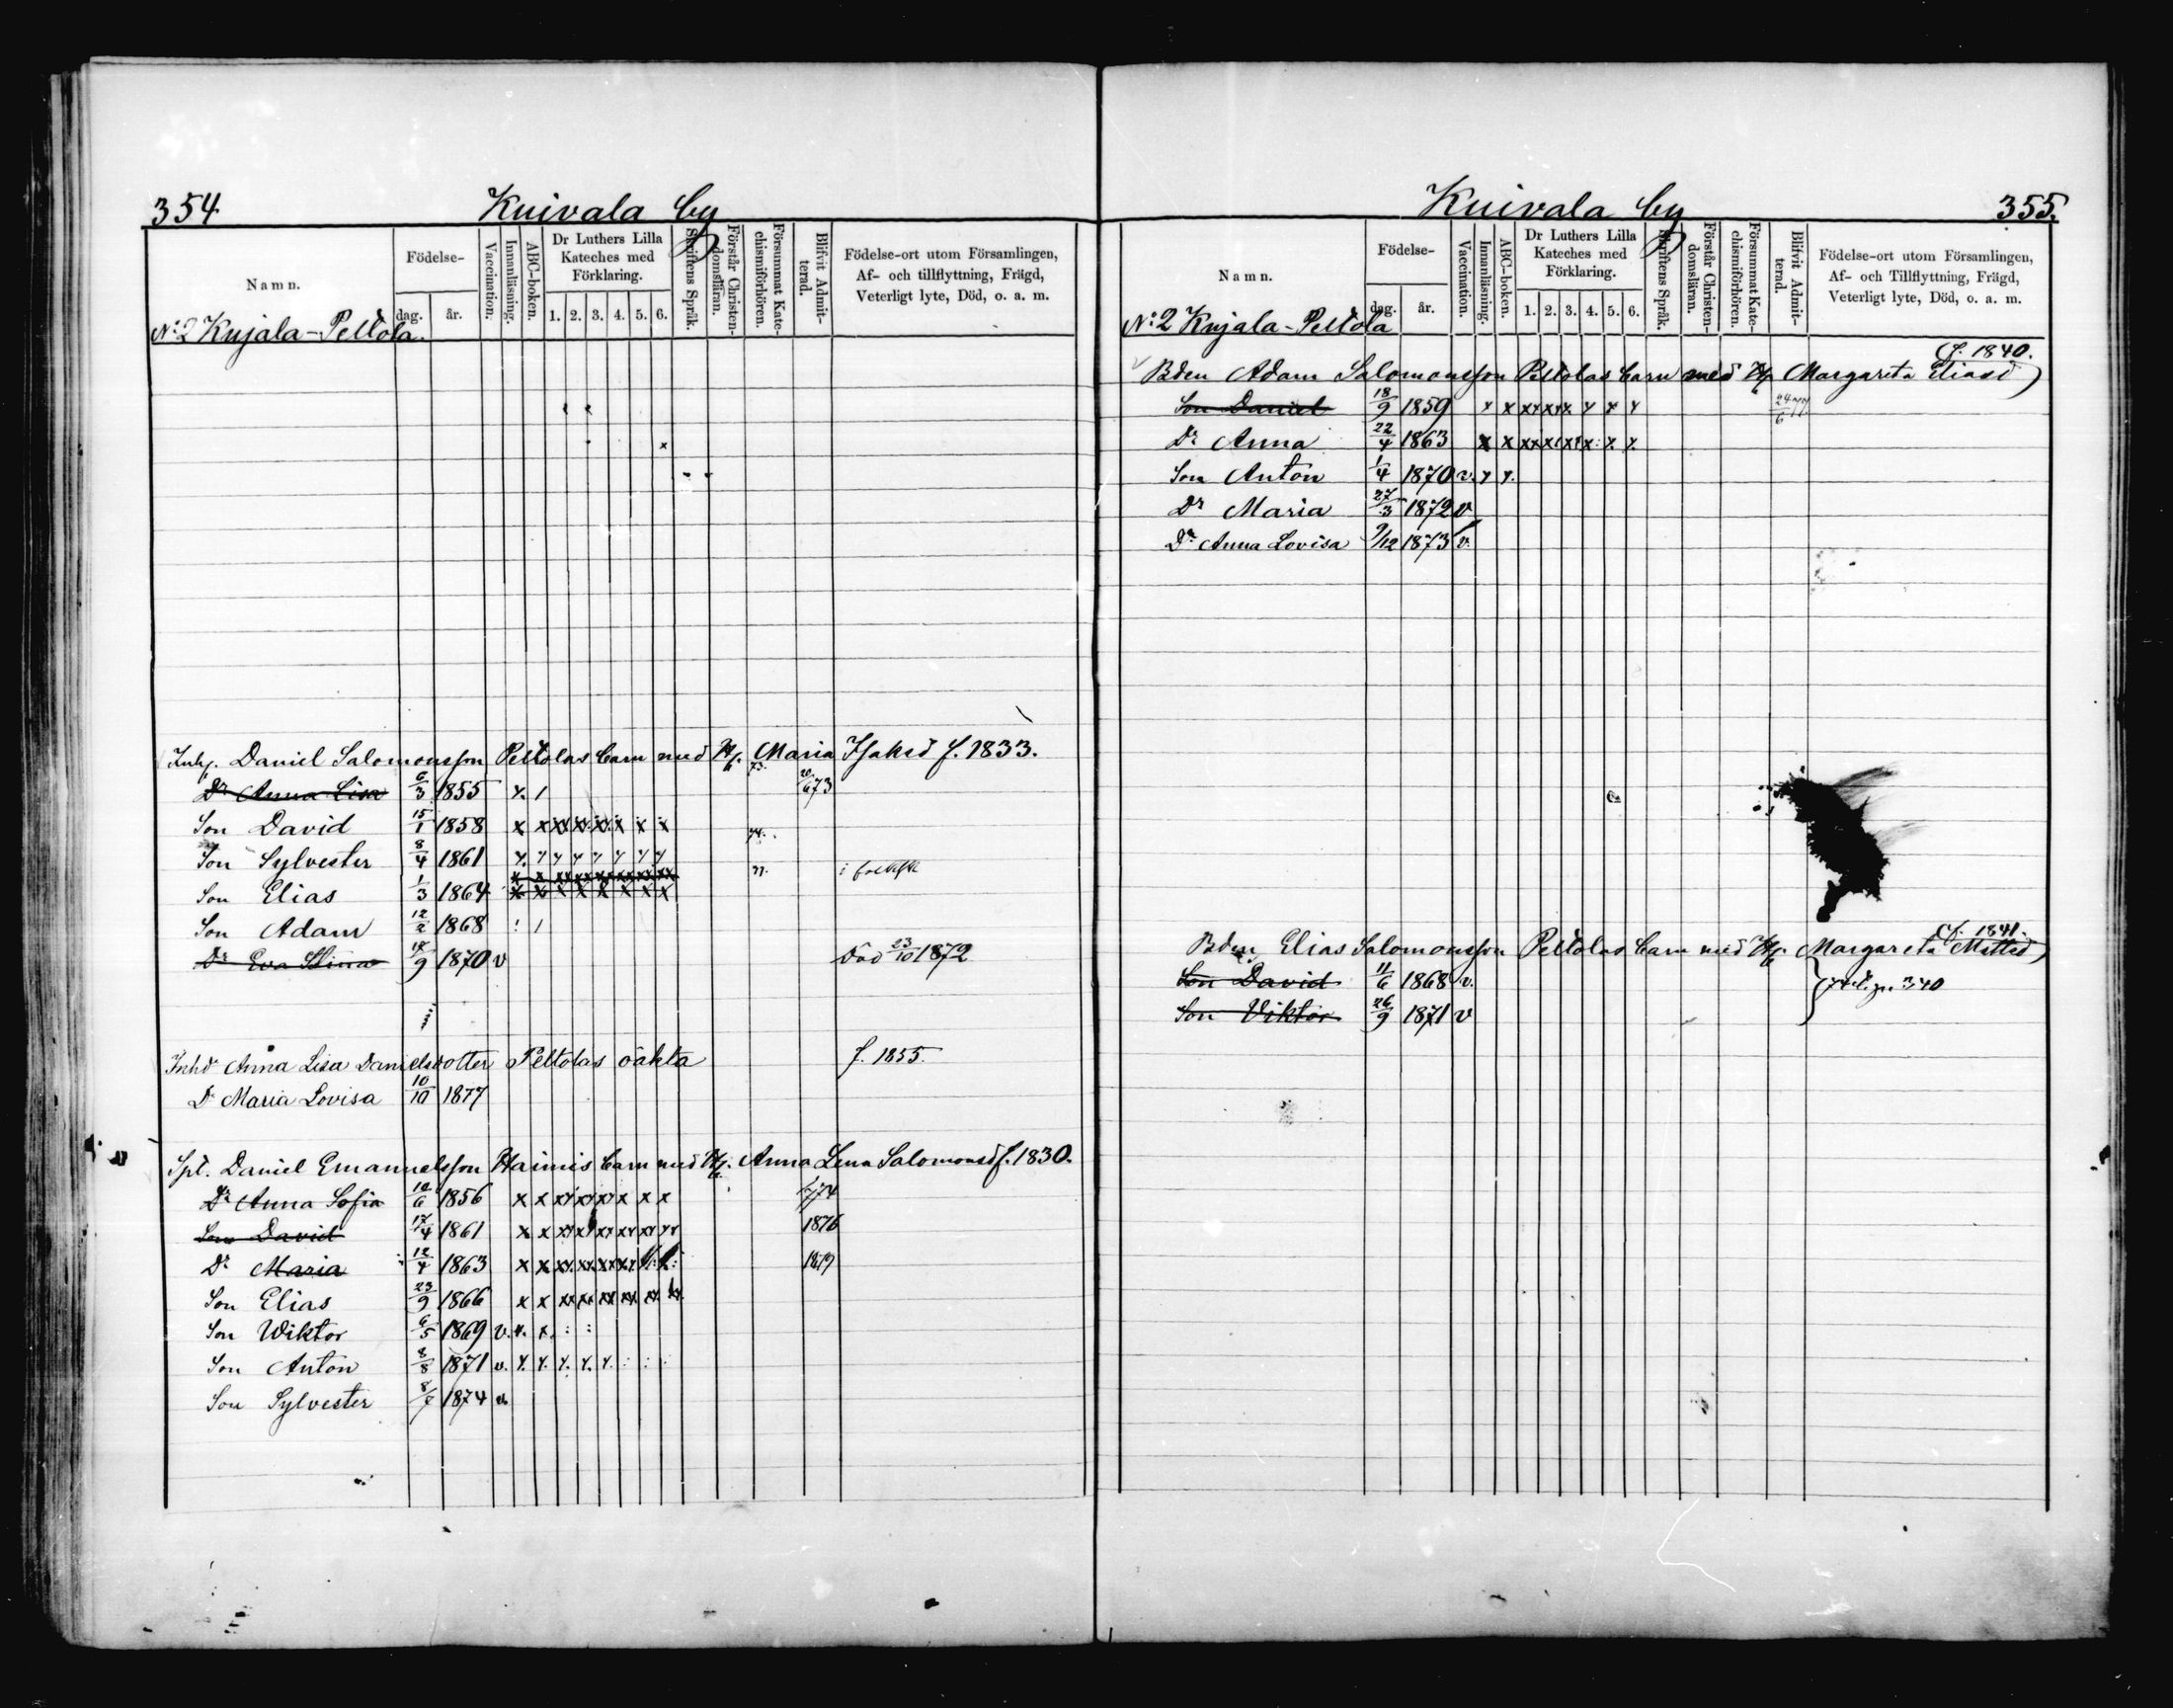 354 Knivala by
Namn. Födelse- dag. år. Vaccination. Innanläsning. ABC-boken. Dr Luthers Lilla Kateches med Förklaring. 1. 2. 3. 4. 5. 6. Skriftens Språk. Förstår Christendomsläran. Försummat Katechismiförhören. Blifvit Admitterad. Födelse-ort utom Församlingen, Af- och tillflyttning, Frägd, Veterligt lyte, Död, o. a. m.
No 2 Kujala-Peltola.
Inhs. Daniel Salomonsson Peltolas barn med H. Maria Isaksd f. 1833.
Dr Anna Lisa 6/3 1855 x /  20/6 73
Son David 15/1 1858 x x xx xx xx x x x
Son Sylvester 8/4 1861 x x x x x x x x
Son Elias 1/3 1864 x x x x x x x x
Son Adam 12/2 1868
Dr Eva Stina 14/9 1870 v Död 23/10 1872
Inhs Anna Lisa Danielsdotter Peltolas oäkta f. 1855.
Dr Maria Lovisa 10/10 1877
Spt. Daniel Emanuelsson Haimis barn med H. Anna Lena Salomonsd f. 1830.
Dr Anna Sofia 10/6 1856 x x xx xx xx x x x
Son David 17/4 1861 x x xx xx xx xx xx xx 1876
Dr Maria 12/4 1863 x x xx xx xx xx 1879
Son Elias 23/9 1866 x x xx xx xx xx xx xx
Son Wiktor 6/5 1869 v. x. x. : :
Son Anton 8/8 1871 v. x. x. x. x. x. : : :
Son Sylvester 1874 v.
Knivala by 355.
Namn. Födelse- dag. år. Vaccination. Innanläsning. ABC-boken. Dr Luthers Lilla Kateches med Förklaring. 1. 2. 3. 4. 5. 6. Skriftens Språk. Förstår Christendomsläran. Försummat Katechismiförhören. Blifvit Admitterad. Födelse-ort utom Församlingen, Af- och Tillflyttning, Frägd, Veterligt lyte, Död, o. a. m.
No 2 Kujala-Peltola
Bden Adam Salomonsson Peltolas barn med H. Margareta Eliasd (f. 1840.)
Son Daniel 18/9 1859 x x xx xx x x x x 24/6 77
Dr Anna 22/4 1863 x x xx xx xx x x. x.
Son Anton 1/4 1870 v. x x.
Dr Maria 27/3 1872 v
Dr Anna Lovisa 9/12 1873 v.
Bden Elias Salomonsson Peltolas barn med H. Margareta Mattsd (f. 1841.)
Son David 11/6 1868 v.
Son Viktor 26/9 1871 v } 340